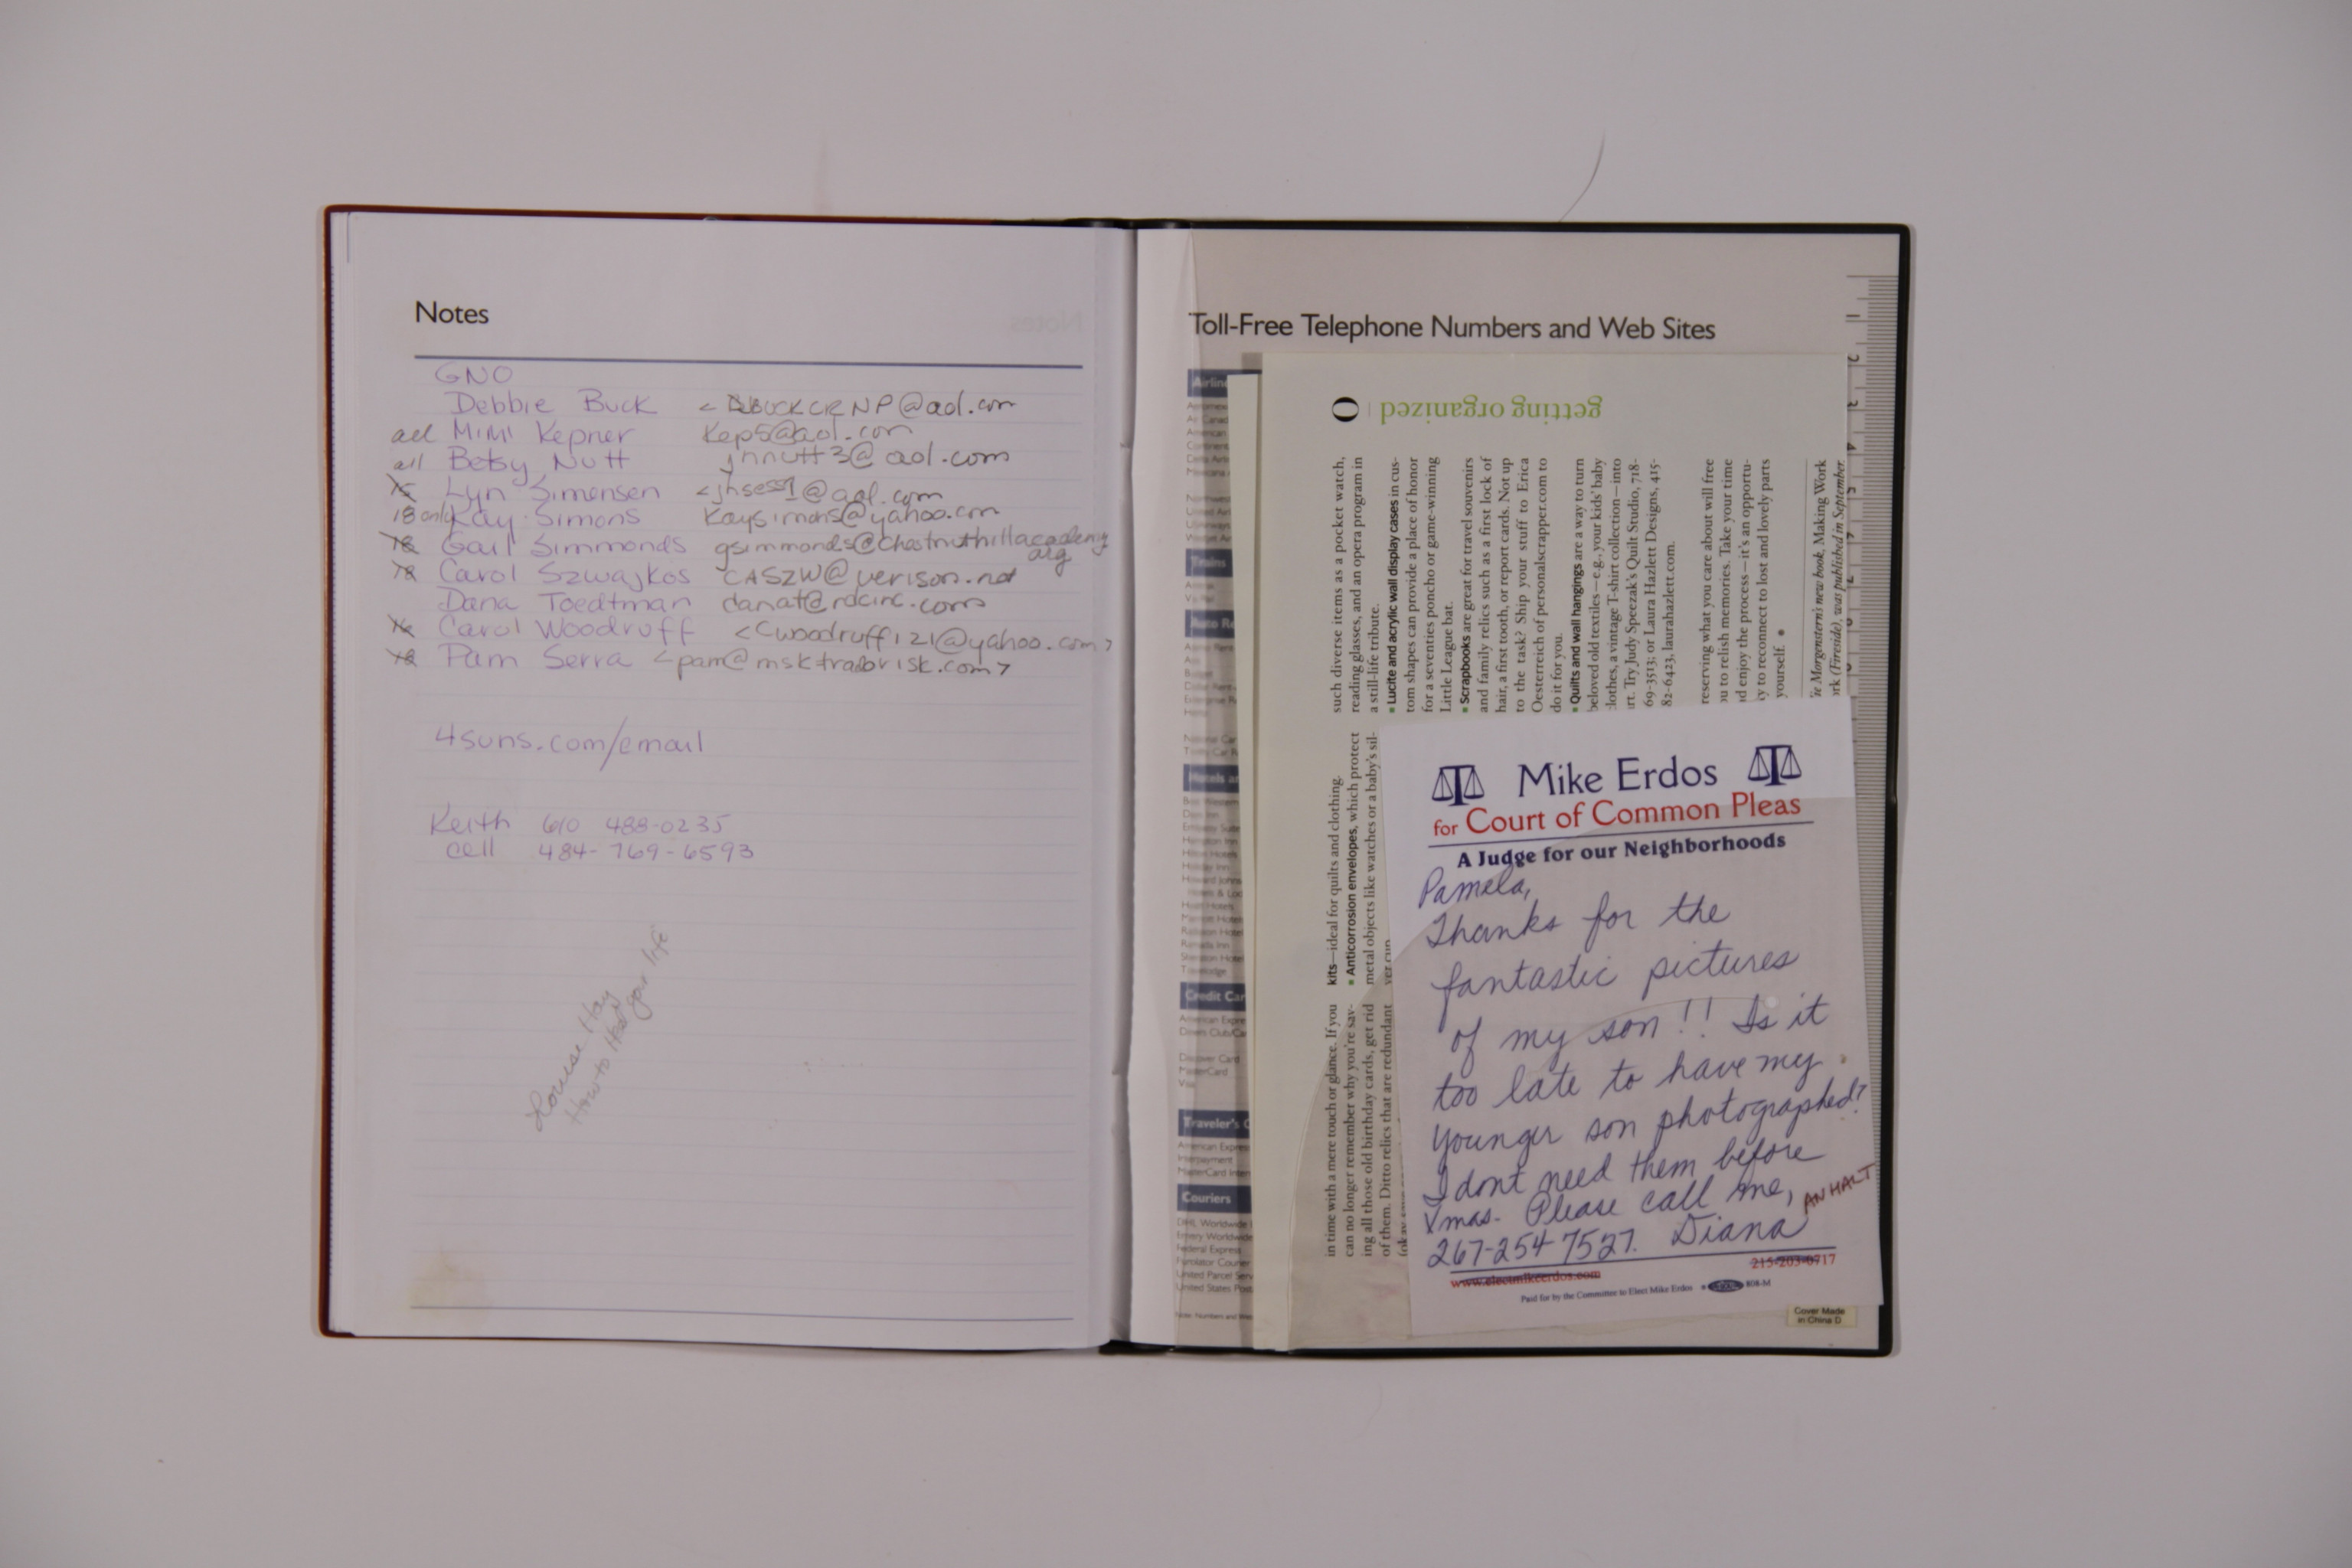 Notes
GNO
Debbie Buck <DBUCKCRNP@aol.com
all Mimi Kepner Kep5@aol.com
all Betsy Nutt jnnutt3@aol.com
Lyn Simensen <jhsess1@aol.com
18 only Kay Simons Kaysimons@yahoo.com
18 Gail Simmonds gsimmonds@chestnuthillacademy
org
18 Carol Szwajkos CASZW@verison.net
Dana Toedtman danat@rdcinc.com
Carol Woodruff <Cwoodruff121@yahoo.com>
18 Pam Serra <pam@msktraderisk.com>
4suns.com/email
Keith 610 488-0235
cell 484-769-6593
Louise Hay
How to Heal your life
Toll-Free Telephone Numbers and Web Sites
Airlin
Trains
Auto Re
Hotels a
Credit Car
American Expre
Diners Club/Ca
Discover Card
MasterCard
Visa
Traveler's C
American Express
Interpayment
MasterCard Inter
Couriers
DHL Worldwide
Emery Worldwide
Federal Express
Purolator Courier
United Parcel Serv
United States Post
O | getting organized
such diverse items as a pocket watch,
reading glasses, and an opera program in
a still-life tribute.
▪ Lucite and acrylic wall display cases in cus-
tom shapes can provide a place of honor
for a seventies poncho or game-winning
Little League bat.
▪ Scrapbooks are great for travel souvenirs
and family relics such as a first lock of
hair, a first tooth, or report cards. Not up
to the task? Ship your stuff to Erica
Oesterreich of personalscrapper.com to
do it for you.
▪ Quilts and wall hangings are a way to turn
beloved old textiles—e.g., your kids' baby
clothes, a vintage T-shirt collection—into
art. Try Judy Speezak's Quilt Studio, 718-
69-3513; or Laura Hazlett Designs, 415-
82-6423, laurahazlett.com.
reserving what you care about will free
ou to relish memories. Take your time
nd enjoy the process—it's an opportu-
ty to reconnect to lost and lovely parts
yourself. ●
ie Morgenstern's new book, Making Work
rk (Fireside), was published in September.
kits—ideal for quilts and clothing.
▪ Anticorrosion envelopes, which protect
metal objects like watches or a baby's sil-
ver cup
in time with a mere touch or glance. If you
can no longer remember why you're sav-
ing all those old birthday cards, get rid
of them. Ditto relics that are redundant
Mike Erdos
for Court of Common Pleas
A Judge for our Neighborhoods
Pamela,
Thanks for the
fantastic pictures
of my son!! Is it
too late to have my
younger son photographed?
I dont need them before
Xmas. Please call me,
267-254 7527. Diana ANHALT
www.electmikeerdos.com 215-203-0717
Paid for by the Committee to Elect Mike Erdos 808-M
Cover Made
in China D